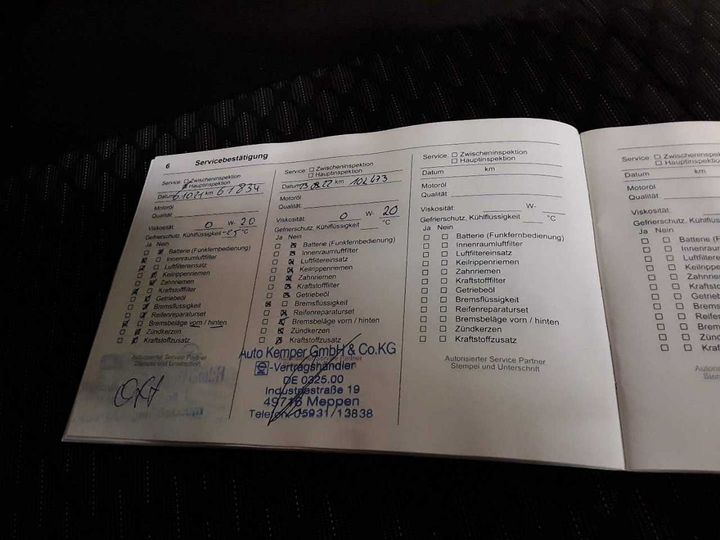 6 Servicebestätigung
Service: Zwischeninspektion
Hauptinspektion
Datum 61021 km 61834
Motoröl
Qualität
Viskosität: 0 W- 20
Gefrierschutz, Kühlflüssigkeit -25 °C
Ja Nein
Batterie (Funkfernbedienung)
Innenraumluftfilter
Luftfiltereinsatz
Keilrippenriemen
Zahnriemen
Kraftstofffilter
Getriebeöl
Bremsflüssigkeit
Reifenreparaturset
Bremsbeläge vorn / hinten
Zündkerzen
Kraftstoffzusatz
Autorisierter Service Partner
Stempel und Unterschrift
Service: Zwischeninspektion
Hauptinspektion
Datum 23.08.22 km 102473
Motoröl
Qualität
Viskosität: 0 W- 20
Gefrierschutz, Kühlflüssigkeit °C
Ja Nein
Batterie (Funkfernbedienung)
Innenraumluftfilter
Luftfiltereinsatz
Keilrippenriemen
Zahnriemen
Kraftstofffilter
Getriebeöl
Bremsflüssigkeit
Reifenreparaturset
Bremsbeläge vorn / hinten
Zündkerzen
Kraftstoffzusatz
Auto Kemper GmbH & Co.KG
-Vertragshändler
DE 0325.00
Industriestraße 19
49716 Meppen
Telefon 05931/13838
Service: Zwischeninspektion
Hauptinspektion
Datum km
Motoröl
Qualität
Viskosität: W-
Gefrierschutz, Kühlflüssigkeit °C
Ja Nein
Batterie (Funkfernbedienung)
Innenraumluftfilter
Luftfiltereinsatz
Keilrippenriemen
Zahnriemen
Kraftstofffilter
Getriebeöl
Bremsflüssigkeit
Reifenreparaturset
Bremsbeläge vorn / hinten
Zündkerzen
Kraftstoffzusatz
Autorisierter Service Partner
Stempel und Unterschrift
Service: Zwischeninspektion
Hauptinspektion
Datum km
Motoröl
Qualität
Viskosität:
Gefrierschutz, Kühlflüssig
Ja Nein
Batterie (Funkf
Innenraumluftfi
Luftfiltereinsa
Keilrippenrie
Zahnriemen
Kraftstofff
Getriebe
Bremsflü
Reifenr
Brems
Zündk
Kraft
Autoris
Ste